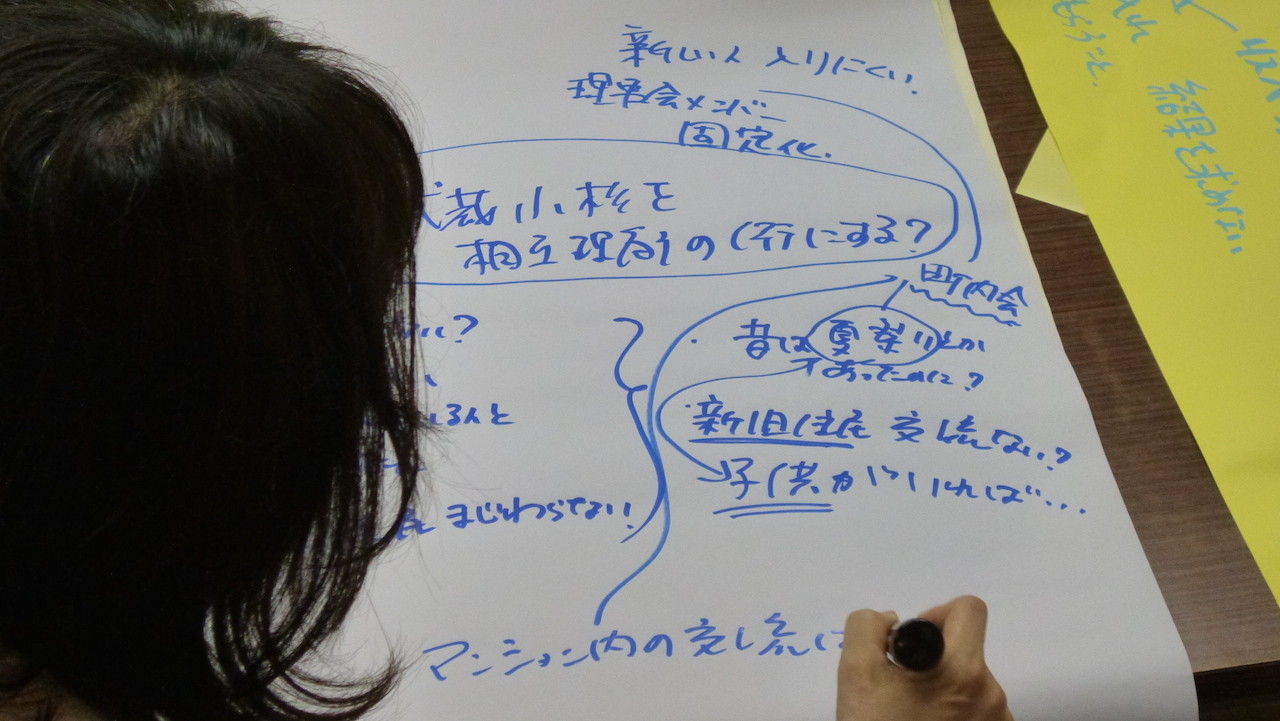 新しい人 入りにくい。
理事会メンバー
固定化。
武蔵小杉を
相互理解の街にする?
町内会
い?
昔は夏祭りとか
あったのに?
るんと
新旧住民 交流ない?
子供がいれば…
まじわらない。
マンション内の交流は
リスペ
結果を求めない
もらうこと。